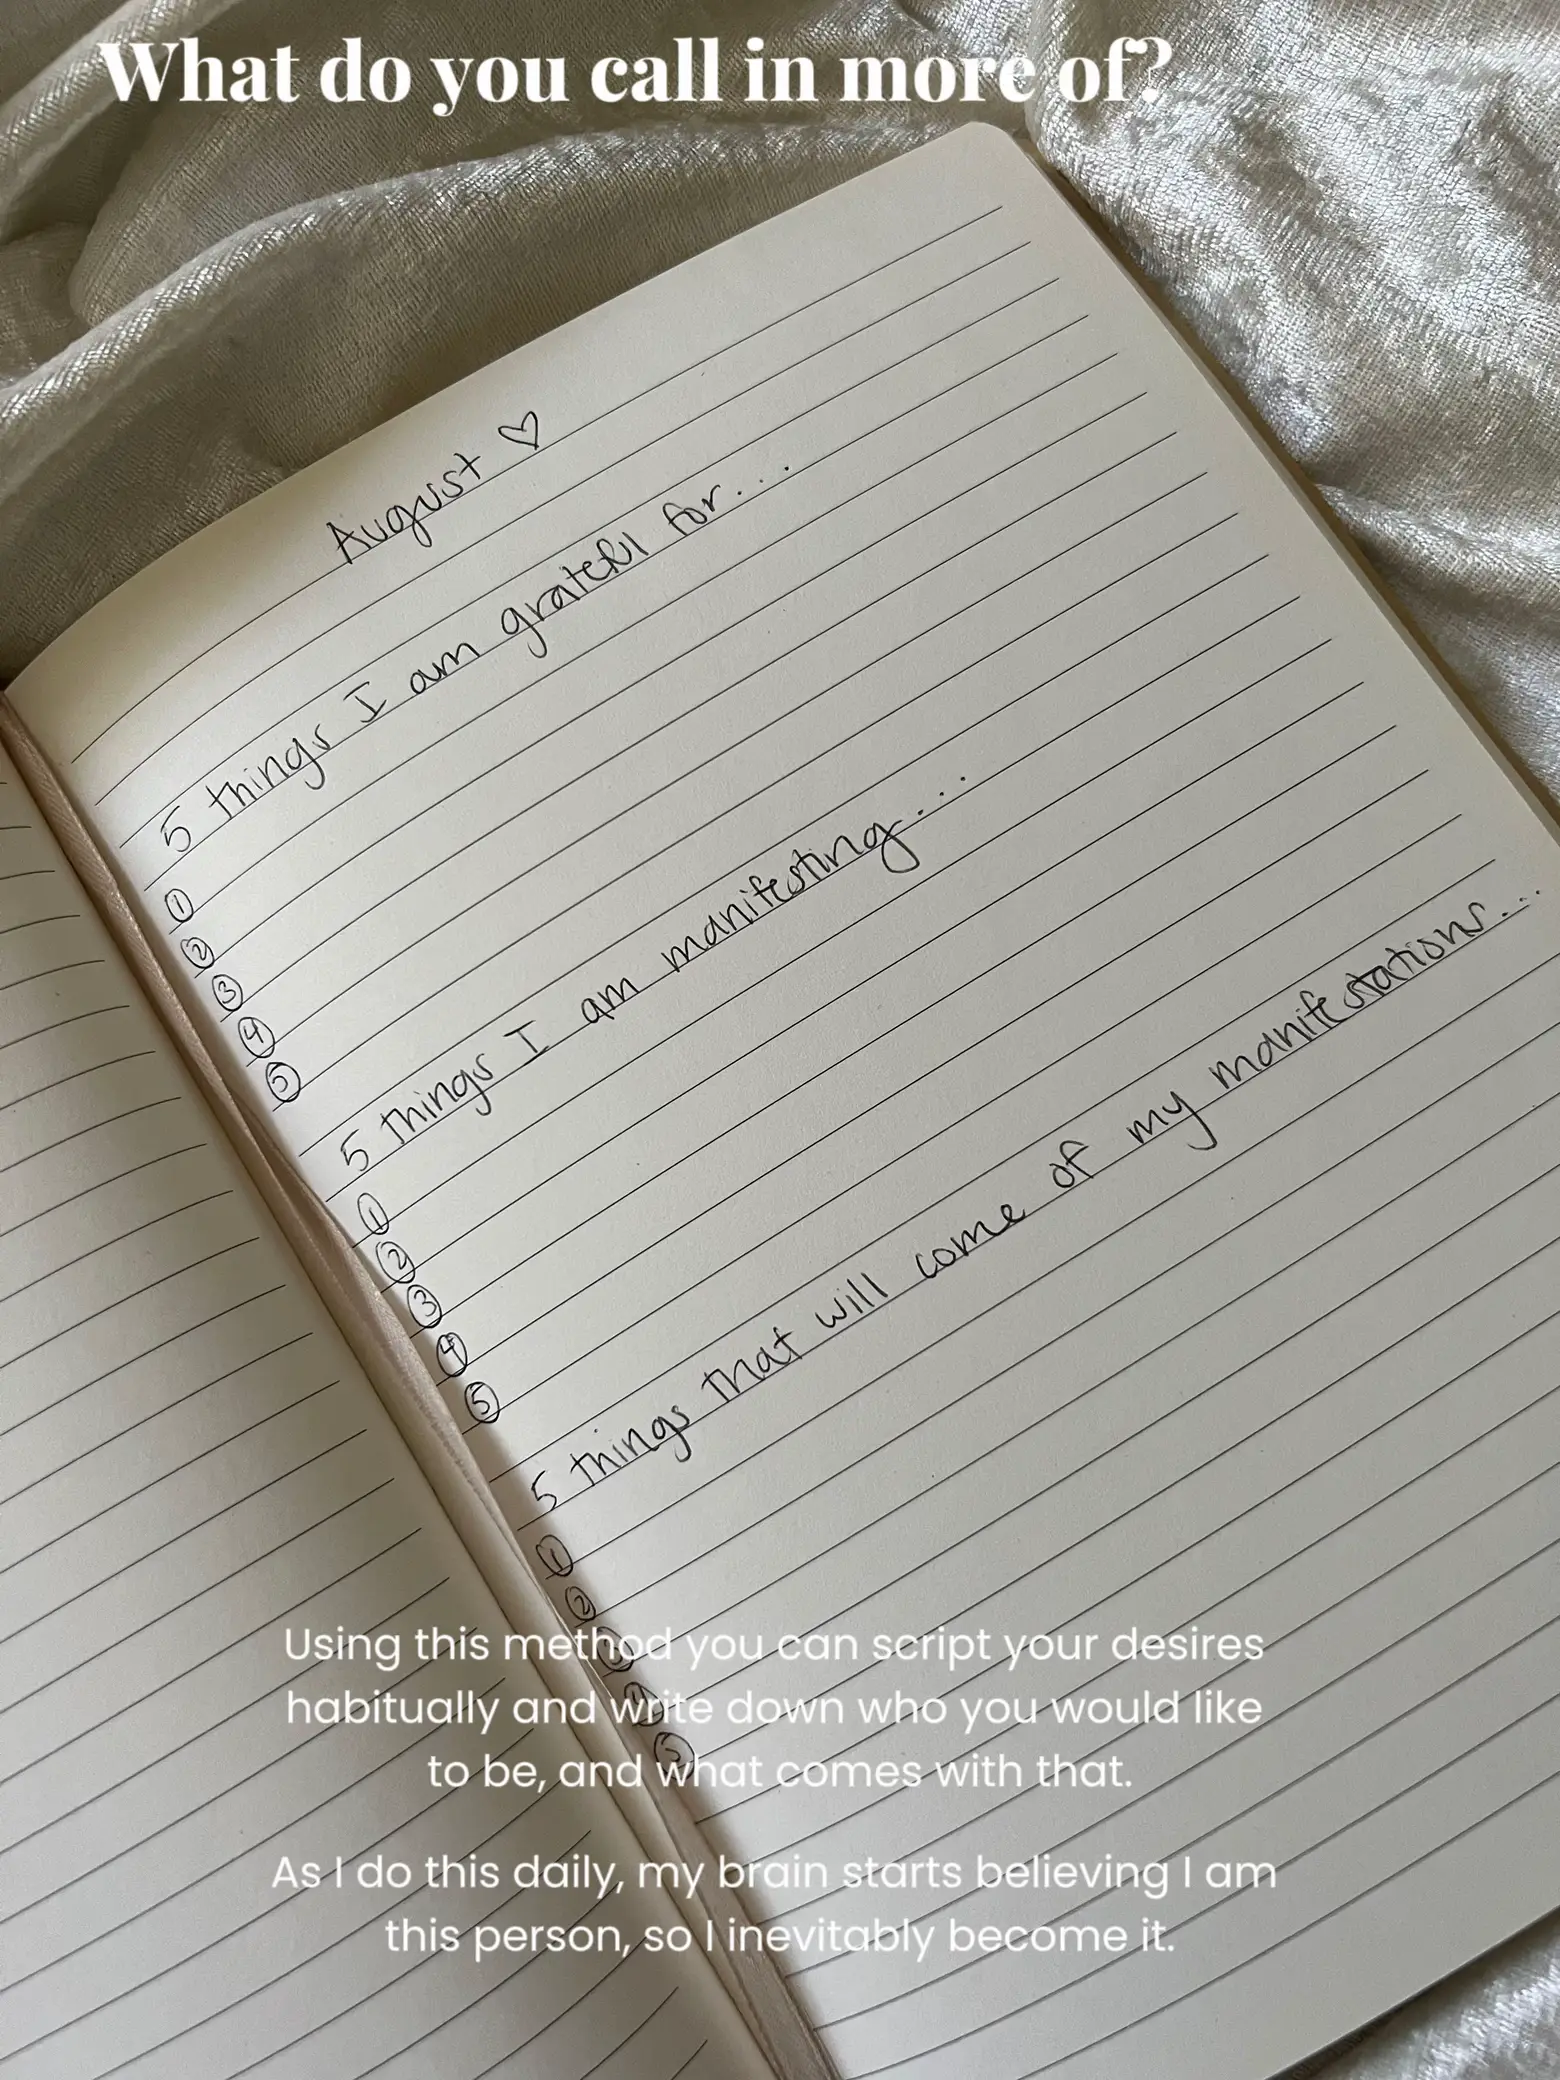 What do you call in more of?
August ♡
5 things I am grateful for...
①
②
③
④
⑤
5 things I am manifesting...
①
②
③
④
⑤
5 things that will come of my manifestations...
①
②
③
④
⑤
Using this method you can script your desires
habitually and write down who you would like
to be, and what comes with that.
As I do this daily, my brain starts believing I am
this person, so I inevitably become it.